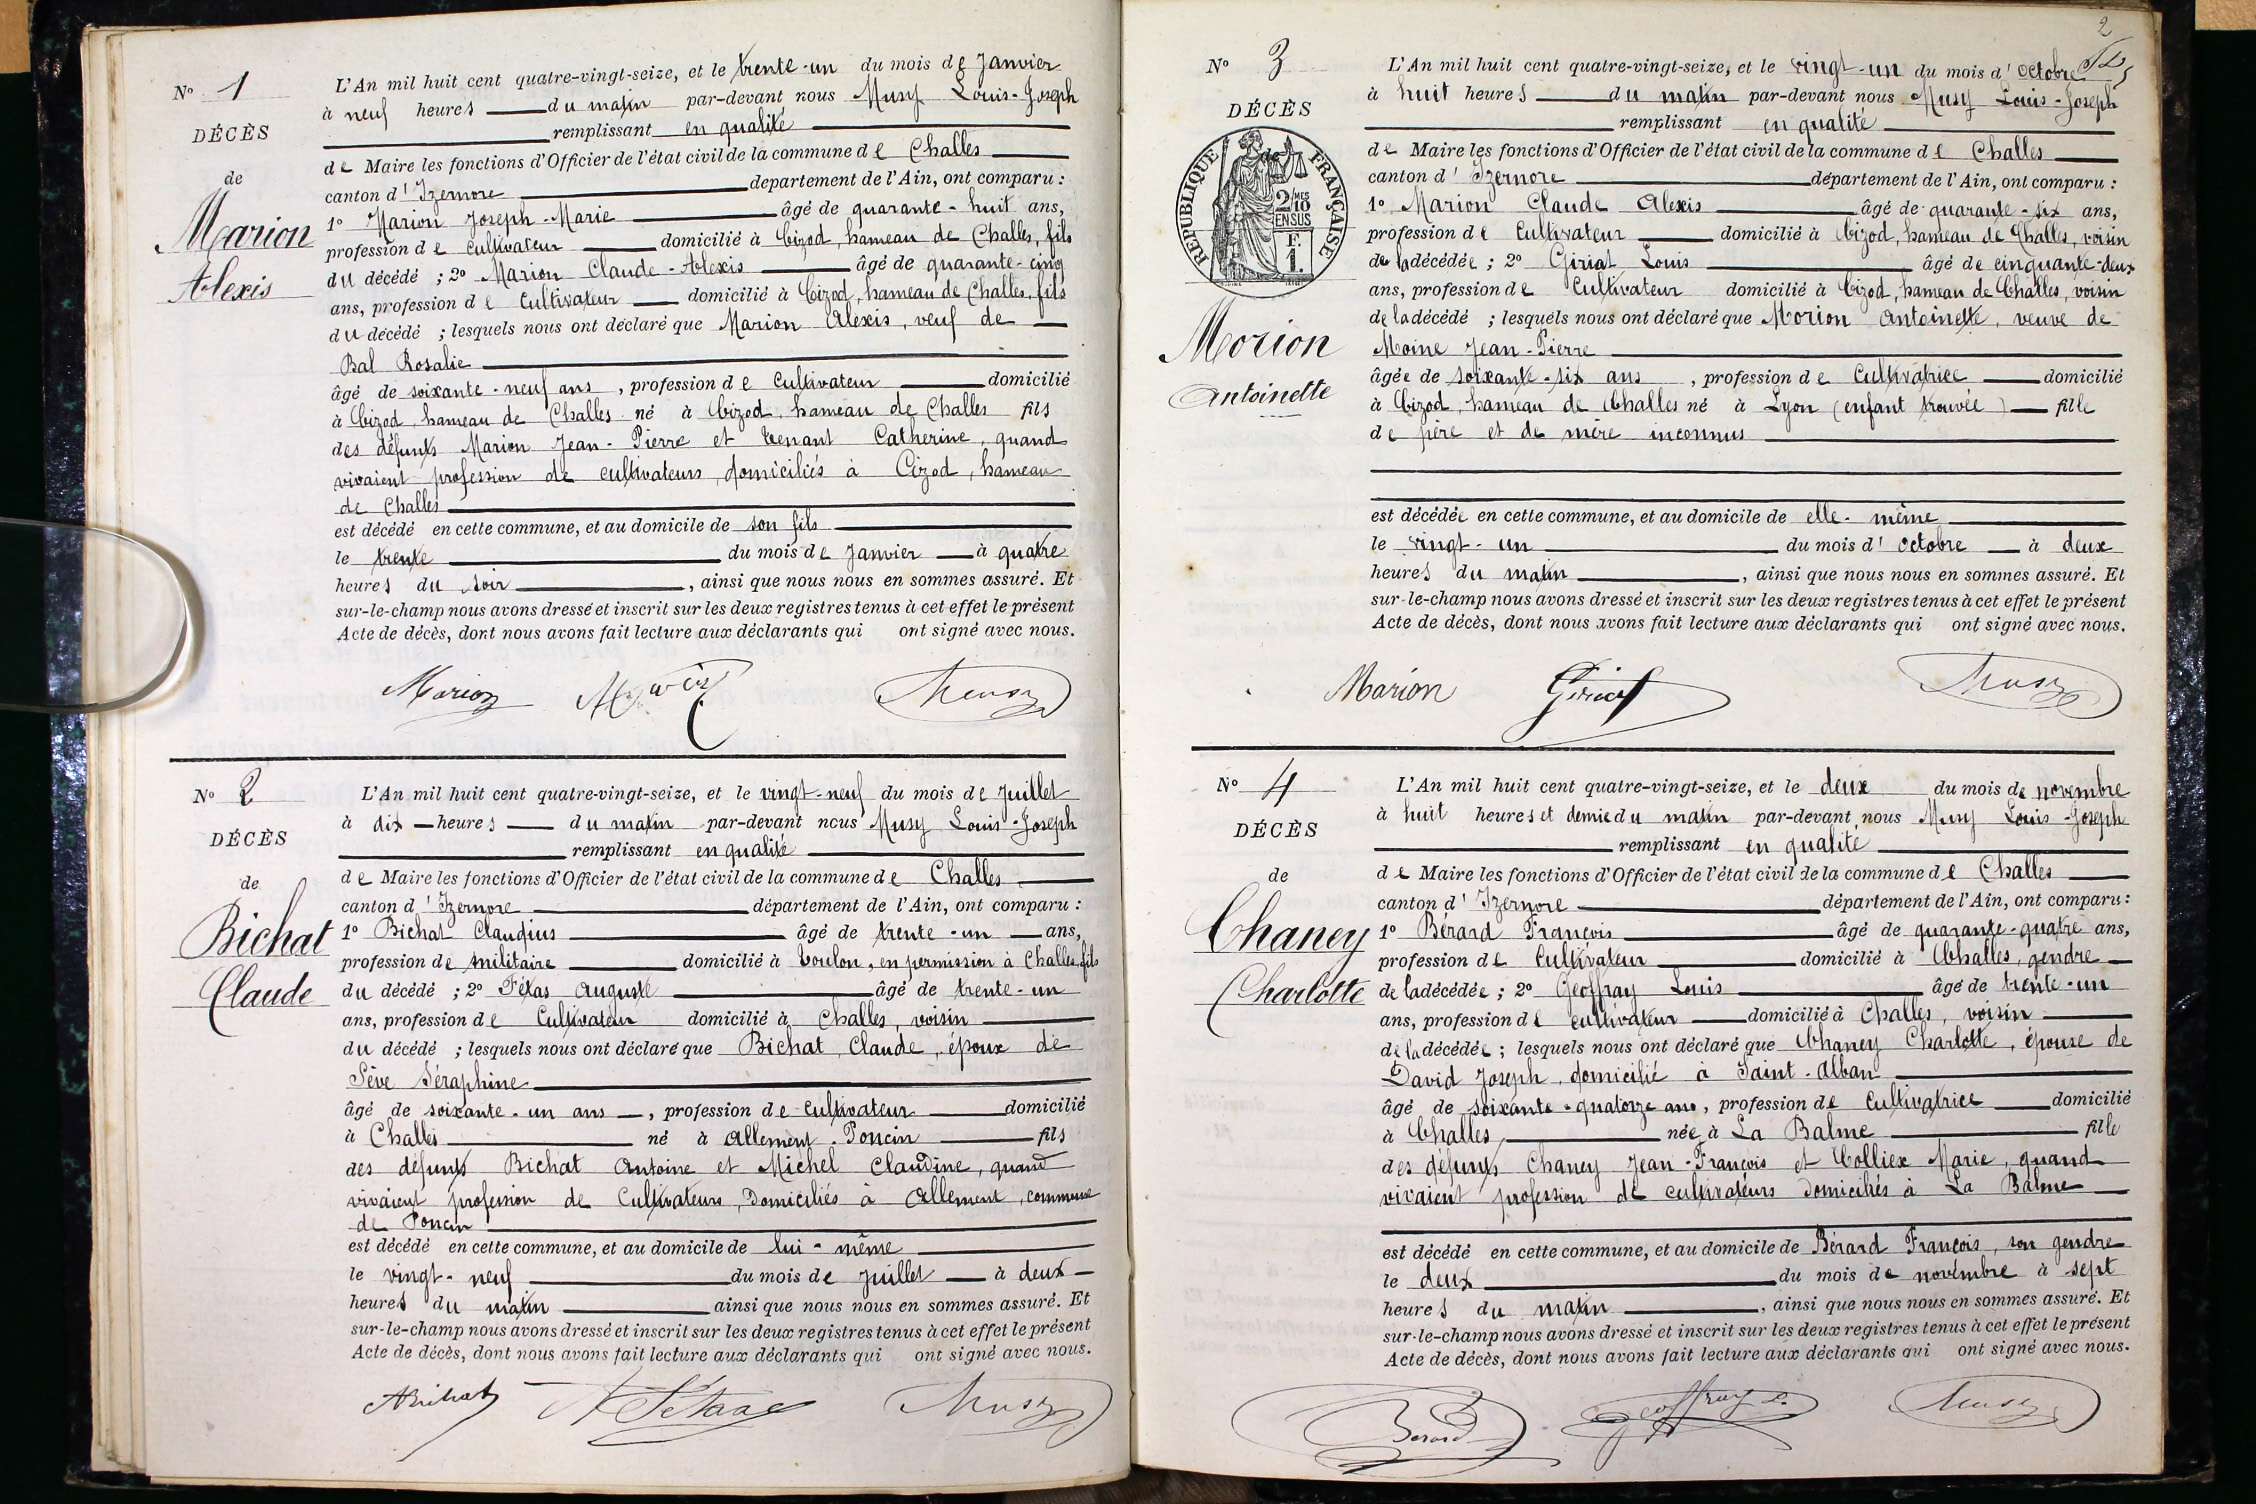 N° 1
DÉCÈS
de
Marion
Alexis
L'An mil huit cent quatre-vingt-seize, et le trente-un du mois de Janvier
à neuf heures du matin par-devant nous Musy Louis-Joseph
remplissant en qualité
de Maire les fonctions d'Officier de l'état civil de la commune de Challes
canton d'Izernore département de l'Ain, ont comparu :
1° Marion Joseph-Marie âgé de quarante-huit ans,
profession de cultivateur domicilié à Cizod, hameau de Challes, fils
du décédé ; 2° Marion Claude-Alexis âgé de quarante-cinq
ans, profession de cultivateur domicilié à Cizod, hameau de Challes, fils
du décédé ; lesquels nous ont déclaré que Marion Alexis, veuf de
Bal Rosalie
âgé de soixante-neuf ans, profession de cultivateur domicilié
à Cizod, hameau de Challes né à Cizod, hameau de Challes fils
des défunts Marion Jean-Pierre et Tenant Catherine, quand
vivaient profession de cultivateurs, domiciliés à Cizod, hameau
de Challes
est décédé en cette commune, et au domicile de son fils
le trente du mois de Janvier à quatre
heures du soir, ainsi que nous nous en sommes assuré. Et
sur-le-champ nous avons dressé et inscrit sur les deux registres tenus à cet effet le présent
Acte de décès, dont nous avons fait lecture aux déclarants qui ont signé avec nous.
Marion Musy
N° 2
DÉCÈS
de
Bichat
Claude
L'An mil huit cent quatre-vingt-seize, et le vingt-neuf du mois de Juillet
à dix heures du matin par-devant nous Musy Louis-Joseph
remplissant en qualité
de Maire les fonctions d'Officier de l'état civil de la commune de Challes
canton d'Izernore département de l'Ain, ont comparu :
1° Bichat Claudius âgé de trente-un ans,
profession de militaire domicilié à Toulon, en permission à Challes, fils
du décédé ; 2° Fétas Auguste âgé de trente-un
ans, profession de Cultivateur domicilié à Challes, voisin
du décédé ; lesquels nous ont déclaré que Bichat Claude, époux de
Sève Séraphine
âgé de soixante-un ans, profession de cultivateur domicilié
à Challes né à Allement-Poncin fils
des défunts Bichat Antoine et Michel Claudine, quand
vivaient profession de Cultivateurs, Domiciliés à Allement, commune
de Poncin
est décédé en cette commune, et au domicile de lui-même
le vingt-neuf du mois de Juillet à deux
heures du matin ainsi que nous nous en sommes assuré. Et
sur-le-champ nous avons dressé et inscrit sur les deux registres tenus à cet effet le présent
Acte de décès, dont nous avons fait lecture aux déclarants qui ont signé avec nous.
Musy
2
N° 3
DÉCÈS
RÉPUBLIQUE FRANÇAISE
2/10MES
EN SUS
F.
1.
Morion
Antoinette
L'An mil huit cent quatre-vingt-seize, et le vingt-un du mois d'octobre
à huit heures du matin par-devant nous Musy Louis-Joseph
remplissant en qualité
de Maire les fonctions d'Officier de l'état civil de la commune de Challes
canton d'Izernore département de l'Ain, ont comparu :
1° Marion Claude Alexis âgé de quarante-six ans,
profession de Cultivateur domicilié à Cizod, hameau de Challes, voisin
de la décédée ; 2° Giriat Louis âgé de cinquante-deux
ans, profession de Cultivateur domicilié à Cizod, hameau de Challes, voisin
de la décédé ; lesquels nous ont déclaré que Morion Antoinette, veuve de
Moine Jean-Pierre
âgée de soixante-six ans, profession de Cultivatrice domicilié
à Cizod, hameau de Challes né à Lyon (enfant trouvée) fille
de père et de mère inconnus
est décédée en cette commune, et au domicile de elle-même
le vingt-un du mois d'octobre à deux
heures du matin, ainsi que nous nous en sommes assuré. Et
sur-le-champ nous avons dressé et inscrit sur les deux registres tenus à cet effet le présent
Acte de décès, dont nous avons fait lecture aux déclarants qui ont signé avec nous.
Marion Giriat Musy
N° 4
DÉCÈS
de
Chaney
Charlotte
L'An mil huit cent quatre-vingt-seize, et le deux du mois de novembre
à huit heures et demie du matin par-devant nous Musy Louis-Joseph
remplissant en qualité
de Maire les fonctions d'Officier de l'état civil de la commune de Challes
canton d'Izernore département de l'Ain, ont comparu :
1° Bérard François âgé de quarante-quatre ans,
profession de Cultivateur domicilié à Challes, gendre
de la décédée ; 2° Geoffray Louis âgé de trente-un
ans, profession de cultivateur domicilié à Challes, voisin
de la décédée ; lesquels nous ont déclaré que Chaney Charlotte, épouse de
David Joseph, domicilié à Saint-Alban
âgé de soixante-quatorze ans, profession de Cultivatrice domicilié
à Challes, née à La Balme fille
des défunts Chaney Jean-François et Colliex Marie, quand
vivaient profession de cultivateurs domiciliés à La Balme
est décédé en cette commune, et au domicile de Bérard François, son gendre
le deux du mois de novembre à sept
heures du matin, ainsi que nous nous en sommes assuré. Et
sur-le-champ nous avons dressé et inscrit sur les deux registres tenus à cet effet le présent
Acte de décès, dont nous avons fait lecture aux déclarants qui ont signé avec nous.
Berard Geoffray L. Musy